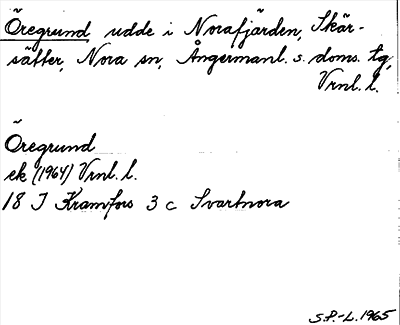 Öregrund, udde i Norafjärden, Skär-
sätter, Nora sn, Ångermanl. s. doms. tg,
Vrnl. l.
Öregrund
ek (1964) Vrnl. l.
18 I Kramfors 3 c Svartnora
S.P.-L. 1965